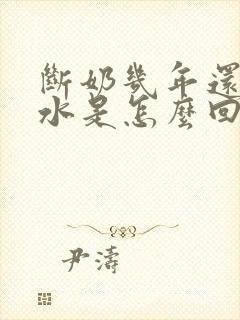 斷奶幾年還
水是怎麼回
尹濤